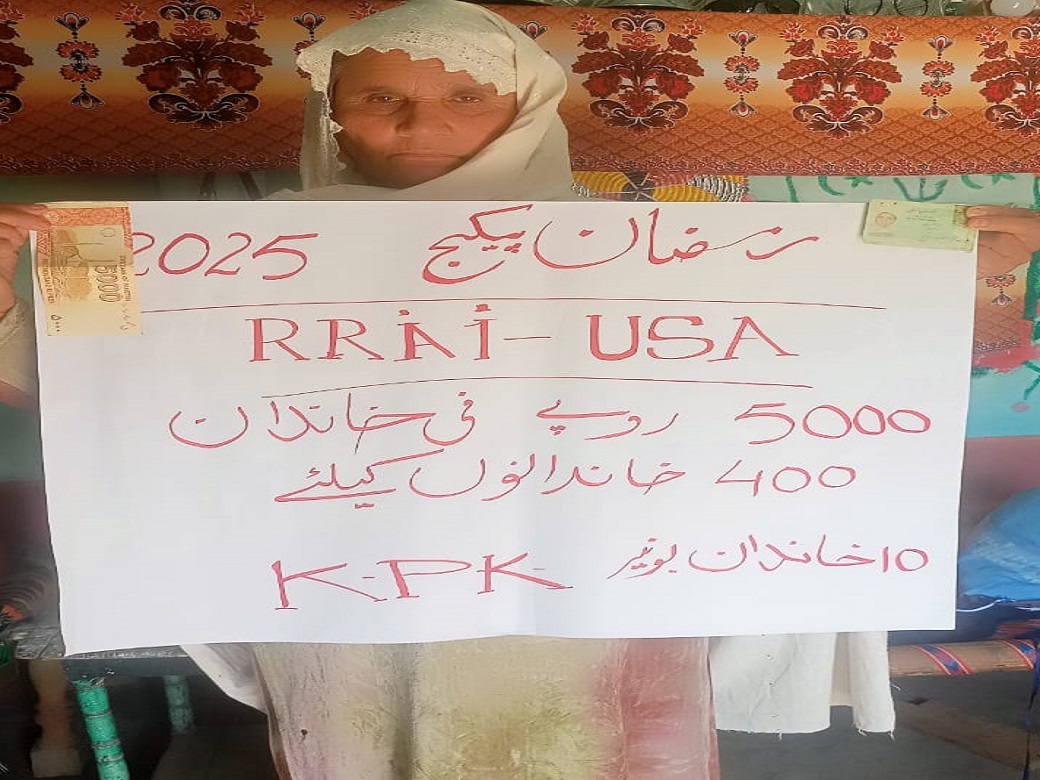 رمضان پیکیج 2025
RRAI-USA
5000 روپے فی خاندان
400 خاندانوں کیلئے
10 خاندان بونیر K.P.K
5000